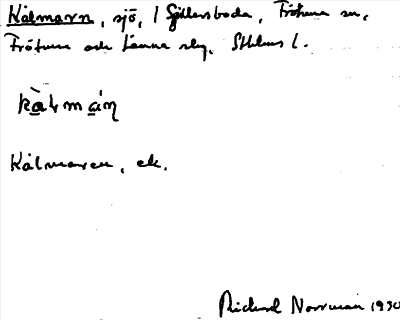 Kålmarn, sjö, i Gällersboda, Frötuna sn,
Frötuna och Länna slg, Sthlms l.
kålmán
Kålmaren, ek.
Richard Norrman 1930